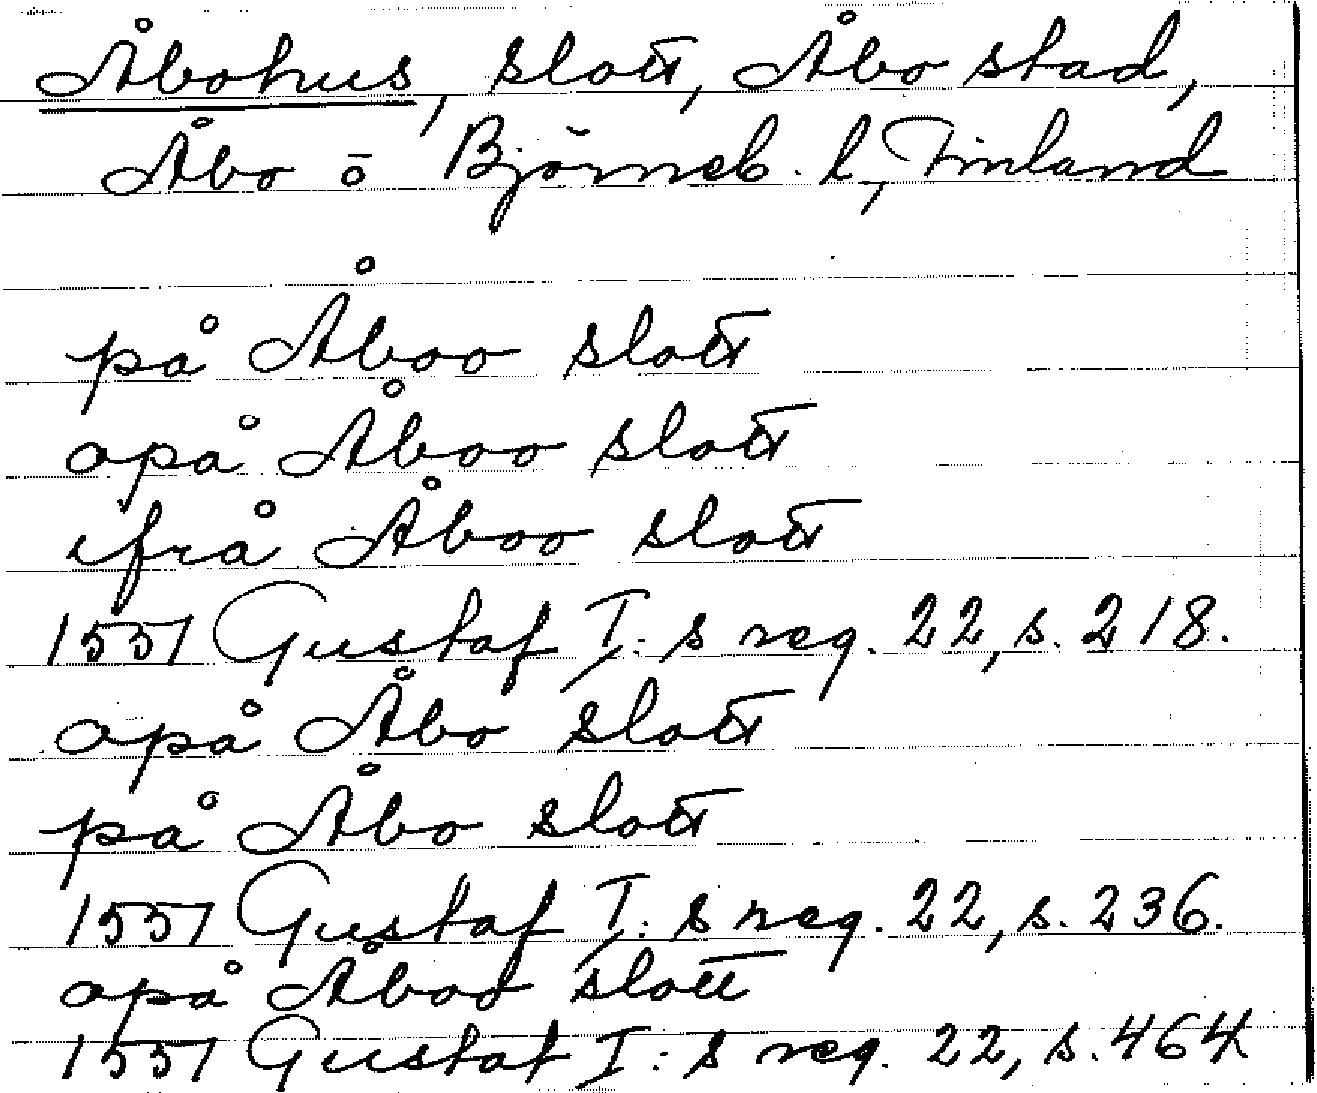 Åbohus, slott, Åbo stad,
Åbo ō Björneb. l, Finland
på Åboo slott
opå Åboo slott
ifrå Åboo slott
1557 Gustaf I:s reg. 22, s. 218.
opå Åbo slott
på Åbo slott
1557 Gustaf I:s reg. 22, s. 236.
opå Åboo slott
1557 Gustaf I:s reg. 22, s. 464